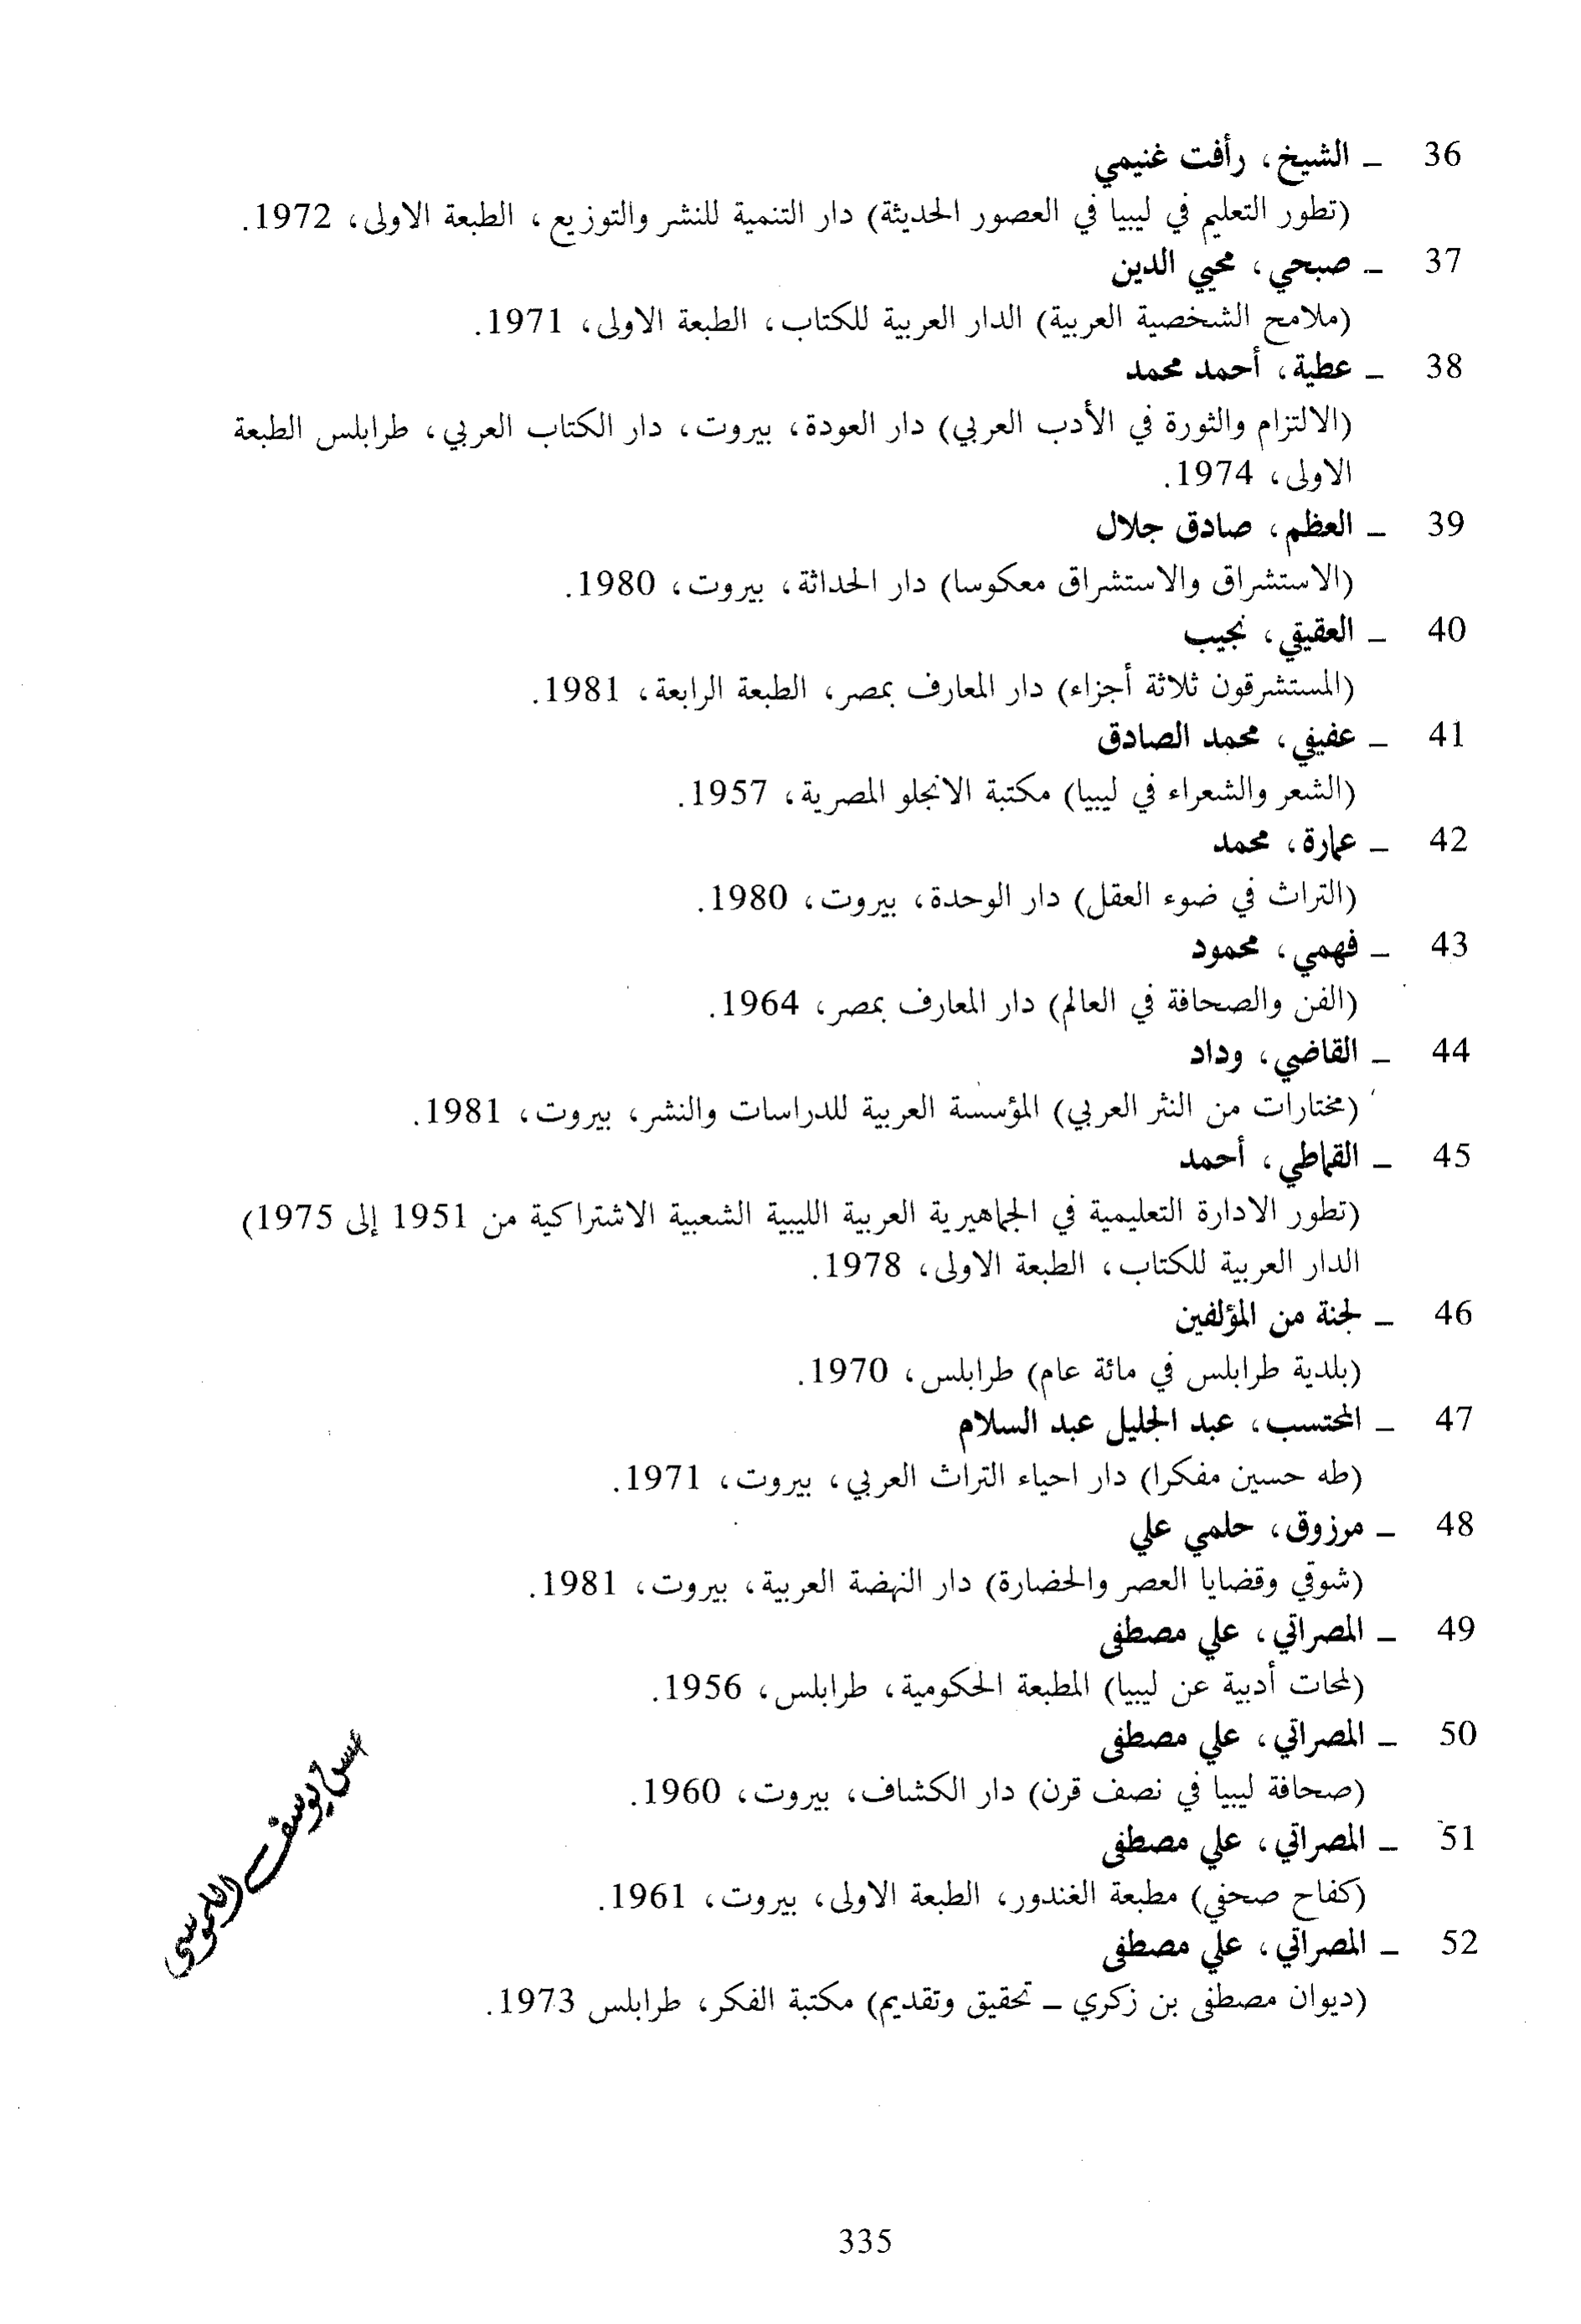 36 – الشيخ، رأفت غنيمي
(تطور التعليم في ليبيا في العصور الحديثة) دار التنمية للنشر والتوزيع، الطبعة الاولى، 1972.
37 – صبحي، محيي الدين
(ملامح الشخصية العربية) الدار العربية للكتاب، الطبعة الاولى، 1971.
38 – عطية، أحمد محمد
(الالتزام والثورة في الأدب العربي) دار العودة، بيروت، دار الكتاب العربي، طرابلس الطبعة
الاولى، 1974.
39 – العظم، صادق جلال
(الاستشراق والاستشراق معكوسا) دار الحداثة، بيروت، 1980.
40 – العقيقي، نجيب
(المستشرقون ثلاثة أجزاء) دار المعارف بمصر، الطبعة الرابعة، 1981.
41 – عفيفي، محمد الصادق
(الشعر والشعراء في ليبيا) مكتبة الانجلو المصرية، 1957.
42 – عمارة، محمد
(التراث في ضوء العقل) دار الوحدة، بيروت، 1980.
43 – فهمي، محمود
(الفن والصحافة في العالم) دار المعارف بمصر، 1964.
44 – القاضي، وداد
(مختارات من النثر العربي) المؤسسة العربية للدراسات والنشر، بيروت، 1981.
45 – القماطي، أحمد
(تطور الادارة التعليمية في الجماهيرية العربية الليبية الشعبية الاشتراكية من 1951 إلى 1975)
الدار العربية للكتاب، الطبعة الاولى، 1978.
46 – لجنة من المؤلفين
(بلدية طرابلس في مائة عام) طرابلس، 1970.
47 – المحتسب، عبد الجليل عبد السلام
(طه حسين مفكرا) دار احياء التراث العربي، بيروت، 1971.
48 – مرزوق، حلمي علي
(شوقي وقضايا العصر والحضارة) دار النهضة العربية، بيروت، 1981.
49 – المصراتي، علي مصطفى
(لمحات أدبية عن ليبيا) المطبعة الحكومية، طرابلس، 1956.
50 – المصراتي، علي مصطفى
(صحافة ليبيا في نصف قرن) دار الكشاف، بيروت، 1960.
51 – المصراتي، علي مصطفى
(كفاح صحفي) مطبعة الغندور، الطبعة الاولى، بيروت، 1961.
52 – المصراتي، علي مصطفى
(ديوان مصطفى بن زكري – تحقيق وتقديم) مكتبة الفكر، طرابلس 1973.
يوسف
335